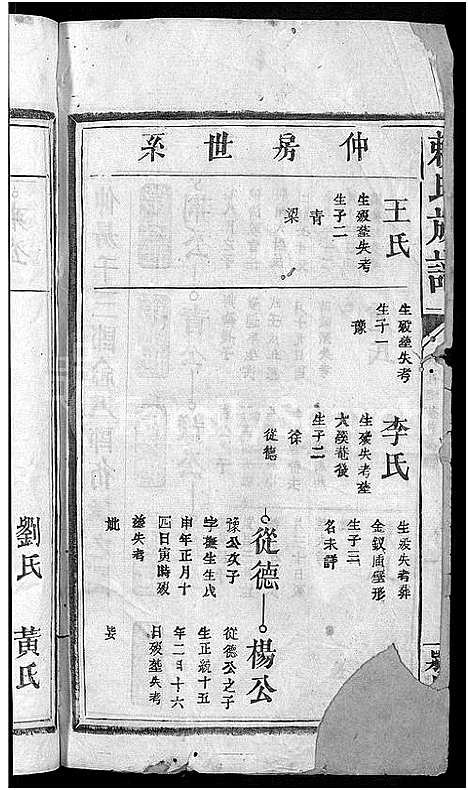 仲房世系
賴氏族譜
王氏
生歿塋失考
生子二
青
梁
生歿塋失考
生子一
豫
李氏
生歿失考塋
大溪菴後
生子二
徐
從德
生歿失考葬
金釵
形
生子三
名未詳
從德
豫公次子
字
生生戊
申年正月十
四日寅時歿
塋失考
妣
楊公
從德公之子
生正統十五
年二月十六
日歿塋失考
妣
劉氏
黃氏